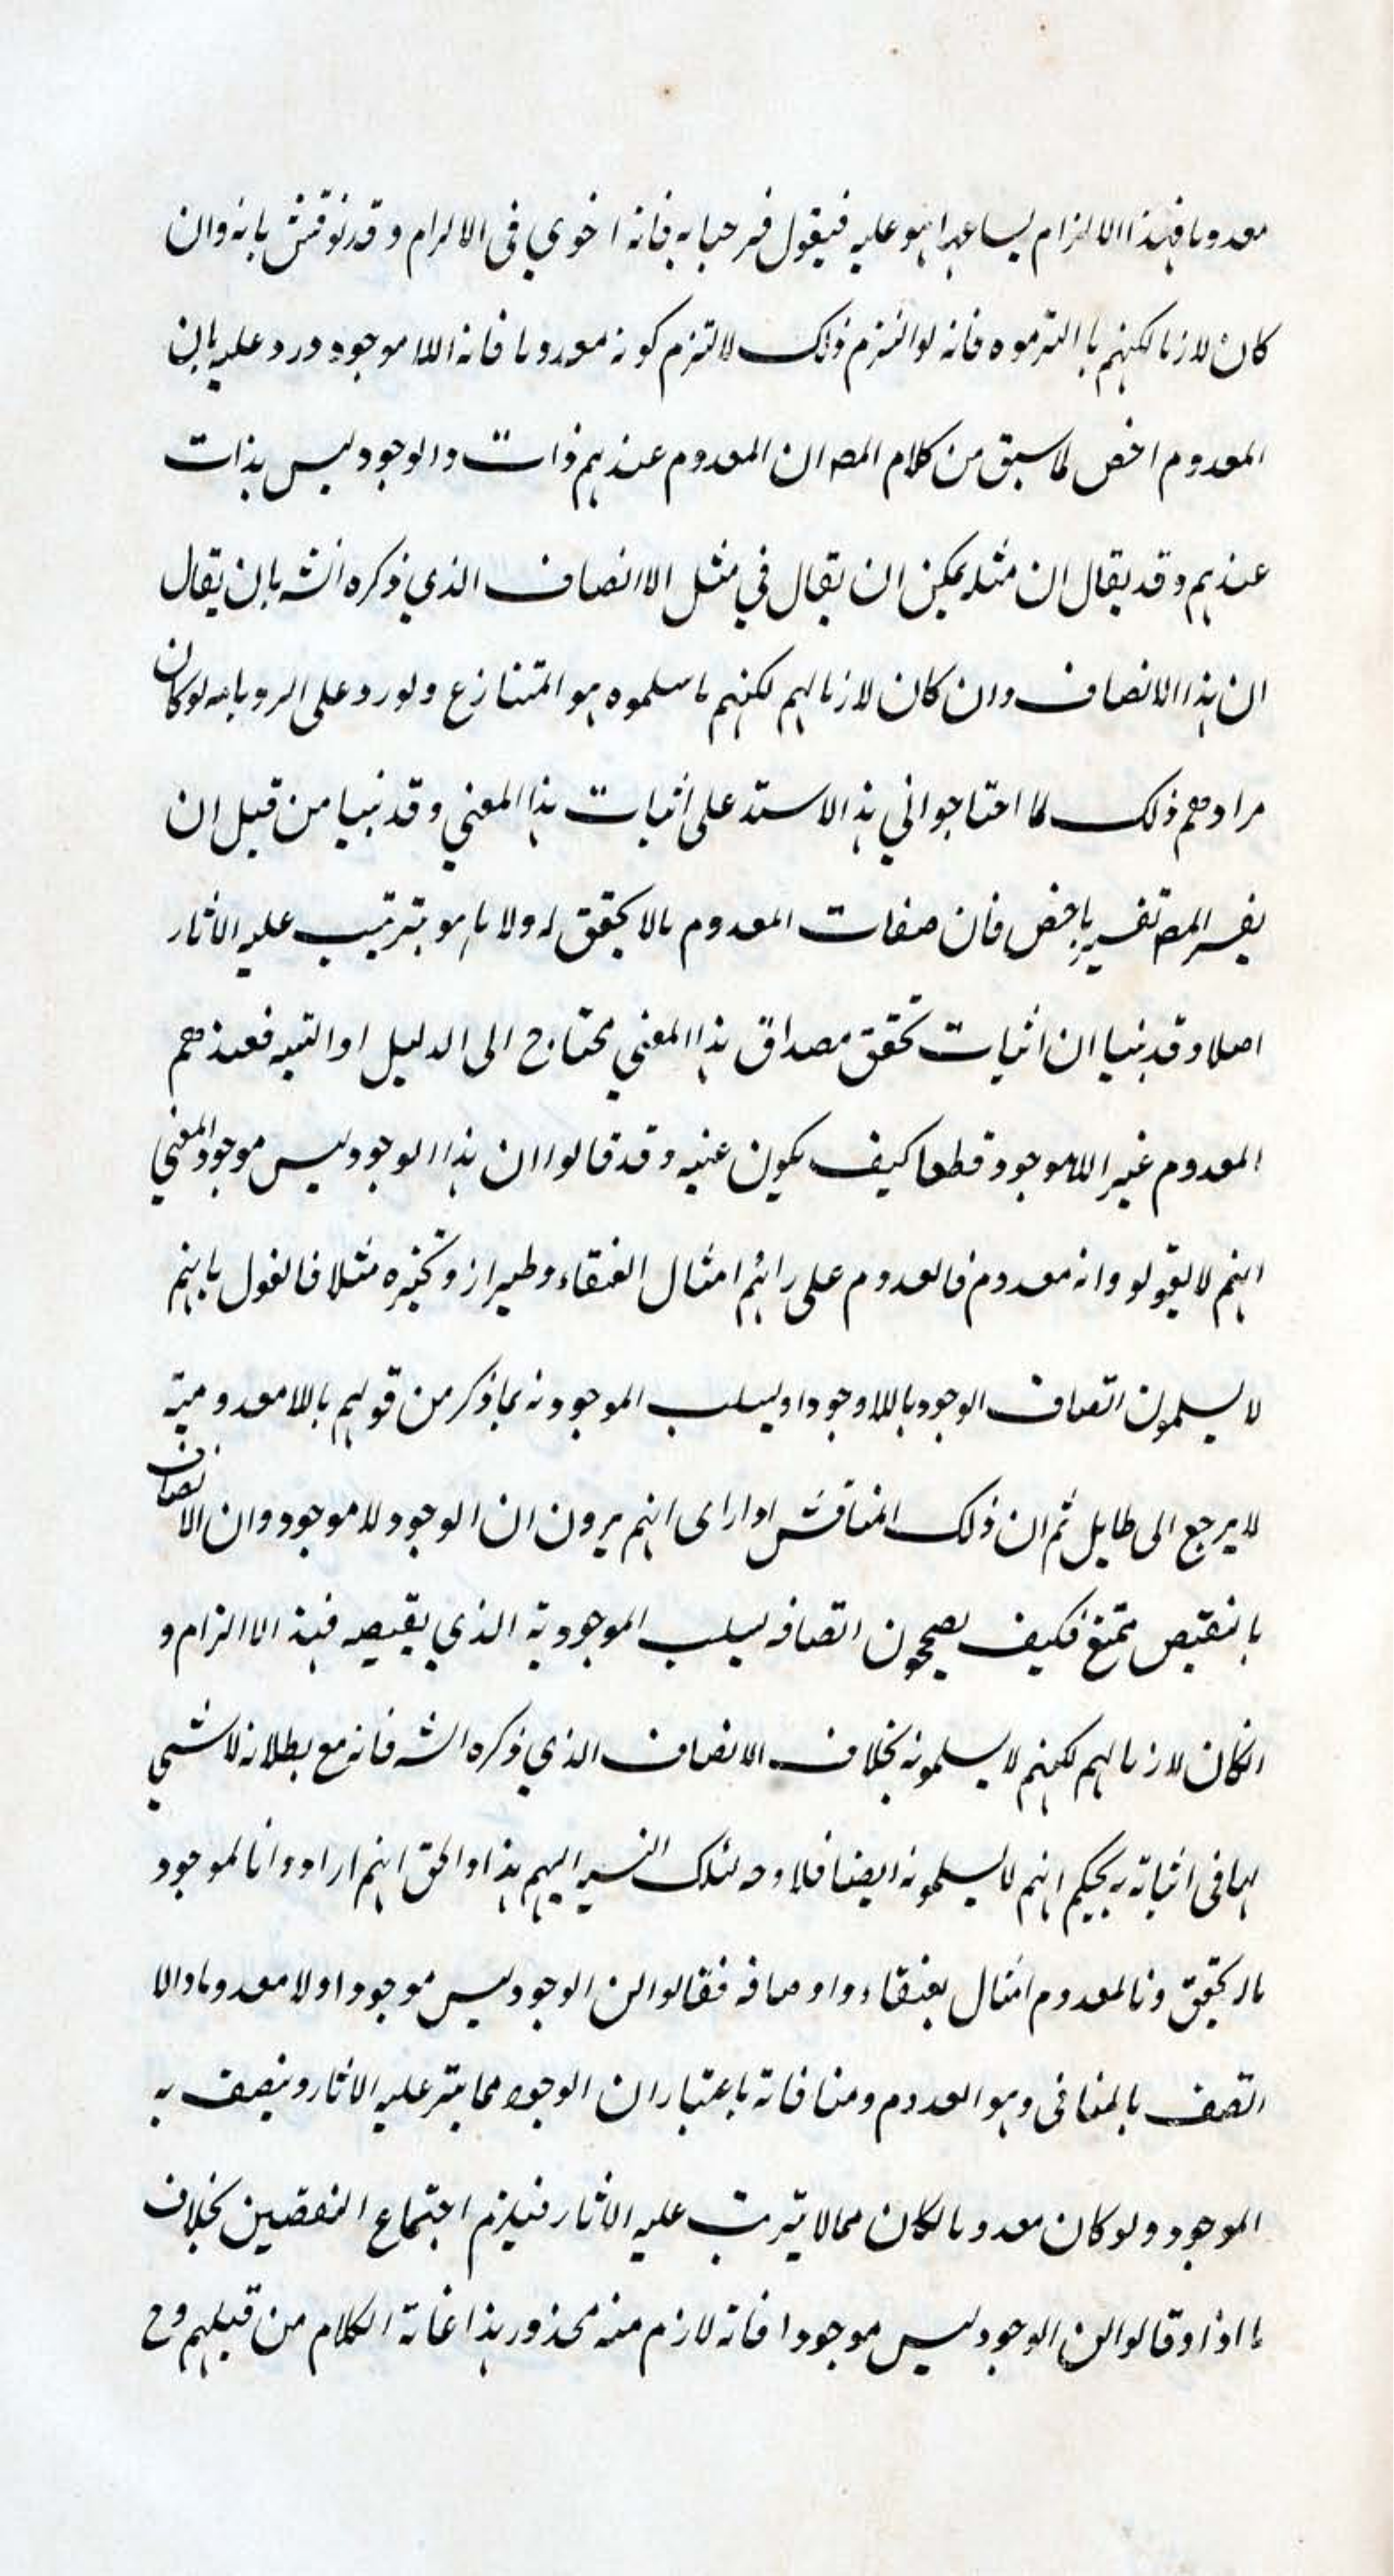 معدوما فهذا الالزام يساعد ما هو عليه فيقول فمرحبا به فانه اخوي في الالزام وقد نوقش بانه وان
كان لازما لكنهم ما التزموه فانه لو التزم ذلك لالتزم كونه معدوما فانه اللاموجود ورد عليه بان
المعدوم اخص لما سبق من كلام المص ان المعدوم عندهم ذات والوجود ليس بذات
عندهم وقد يقال ان مثله يمكن ان يقال في مثل الاتصاف الذي ذكره الش بان يقال
ان هذا الاتصاف وان كان لازما لهم لكنهم ما سلموه هو المتنازع ولورد على الرد بانه لو كان
مرادهم ذلك لما احتاجوا في هذا الاستد على اثبات هذا المعنى وقد نبها من قبل ان
يفسر المص تفسير باخص فان صفات المعدوم مالا تحقق له ولا ما هو يترتب عليه الاثار
اصلا وقد نبها ان اثبات تحقق مصداق هذا المعنى محتاج الى الدليل او التنبيه فعندهم
المعدوم غير اللاموجود قطعا كيف يكون عينه وقد قالوا ان هذا الوجود ليس موجود المعنى
انهم لا يقولوا انه معدوم فالمعدوم على رائهم امثال العنقاء وطيرانه وتحيزه مثلا فالقول بانهم
لا يسلمون اتصاف الوجود باللاوجود او بسلب الموجودية بما ذكر من قولهم باللامعدومية
لا يرجع الى طايل ثم ان ذلك المناقش اذا راى انهم يرون ان الوجود لا موجود وان الاتصاف
بالنقيض ممتنع فكيف يصححون اتصافه بسلب الموجودية الذي نقيضه فهذا الالزام و
انكان لازما لهم لكنهم لا يسلمونه بخلاف الاتصاف الذي ذكره الش فانه مع بطلانه لا شي
لها في اثباته به يحكم انهم لا يسلمونه ايضا فلا وجه لتلك النسبة اليهم هذا والحق انهم ارادوا بالموجود
ماله تحقق وبالمعدوم امثال العنقاء واوصافه فقالوا ان الوجود ليس موجودا ولا معدوما والا
اتصف بالمنافي وهو المعدوم ومنافاته باعتبار ان الوجود مما يترتب عليه الاثار ويتصف به
الموجود ولو كان معدوما لكان ممالا يترتب عليه الاثار فيلزم اجتماع النقيضين بخلاف
ما اذا وقالوا ان الوجود ليس موجودا فانه لا لازم منه محذور هذا غاية الكلام من قبلهم وح